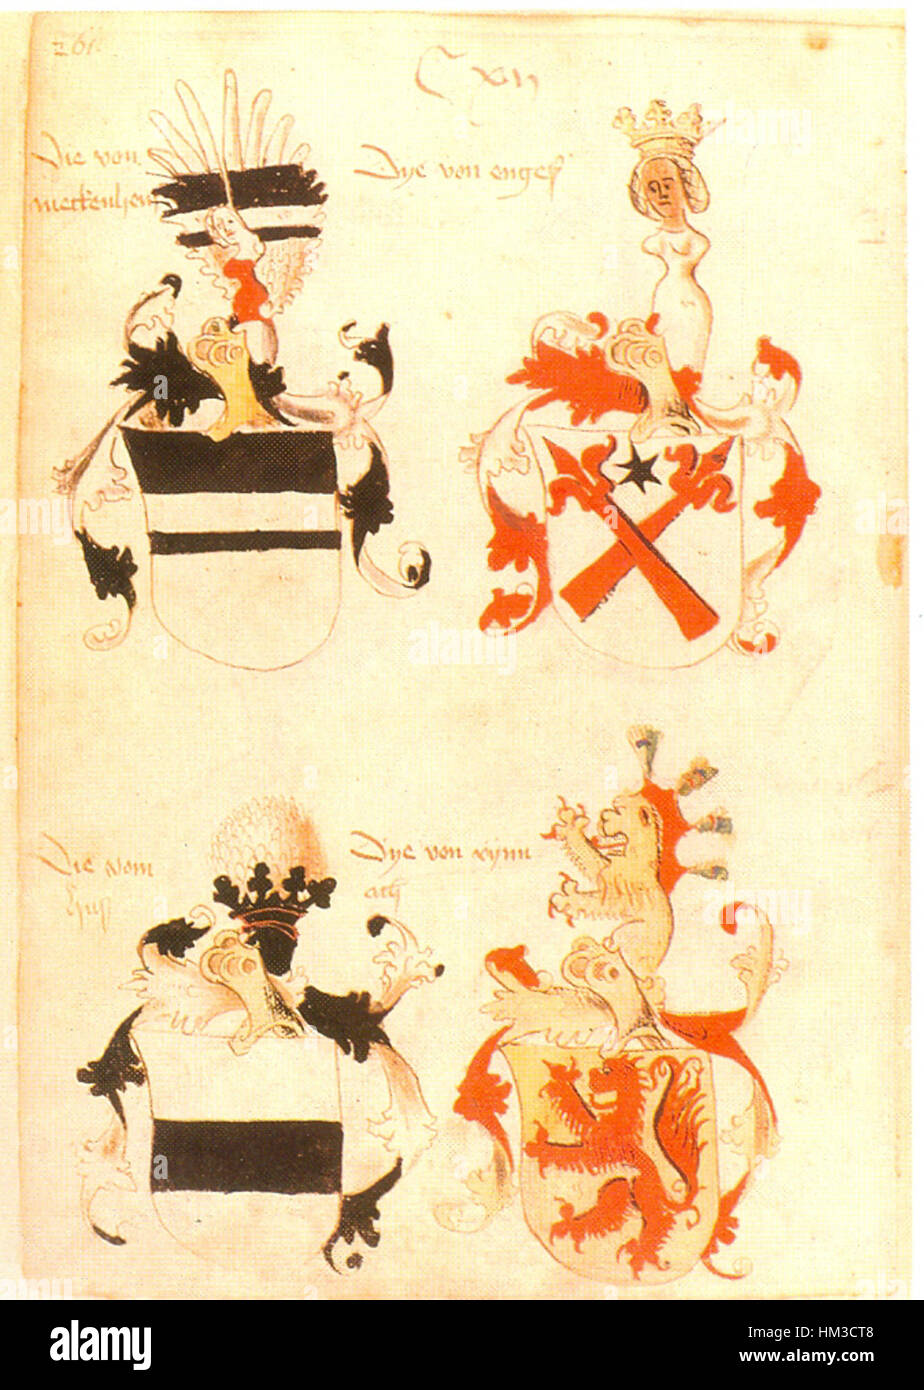 261.
Cxij
Die von
meckenhem
Dye von engeß
Die vom
Huß
Dye von rynn
ach
alamy
HM3CT8
www.alamy.com